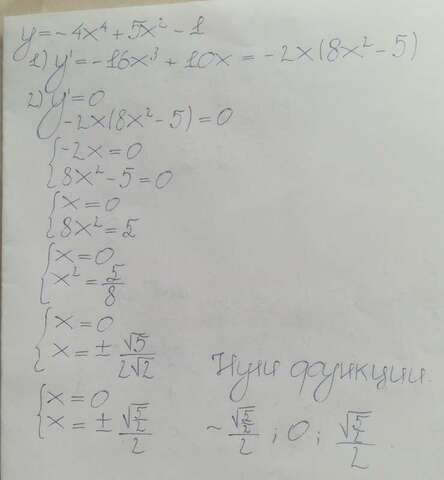 y=-4x⁴+5x²-1
1) y'=-16x³+10x=-2x(8x²-5)
2) y'=0
-2x(8x²-5)=0
{-2x=0
8x²-5=0
{x=0
8x²=5
{x=0
x²=5/8
{x=0
x=±√5/2√2
Нули функции.
{x=0
x=±√(5/2)/2
~√(5/2)/2; 0; √(5/2)/2.